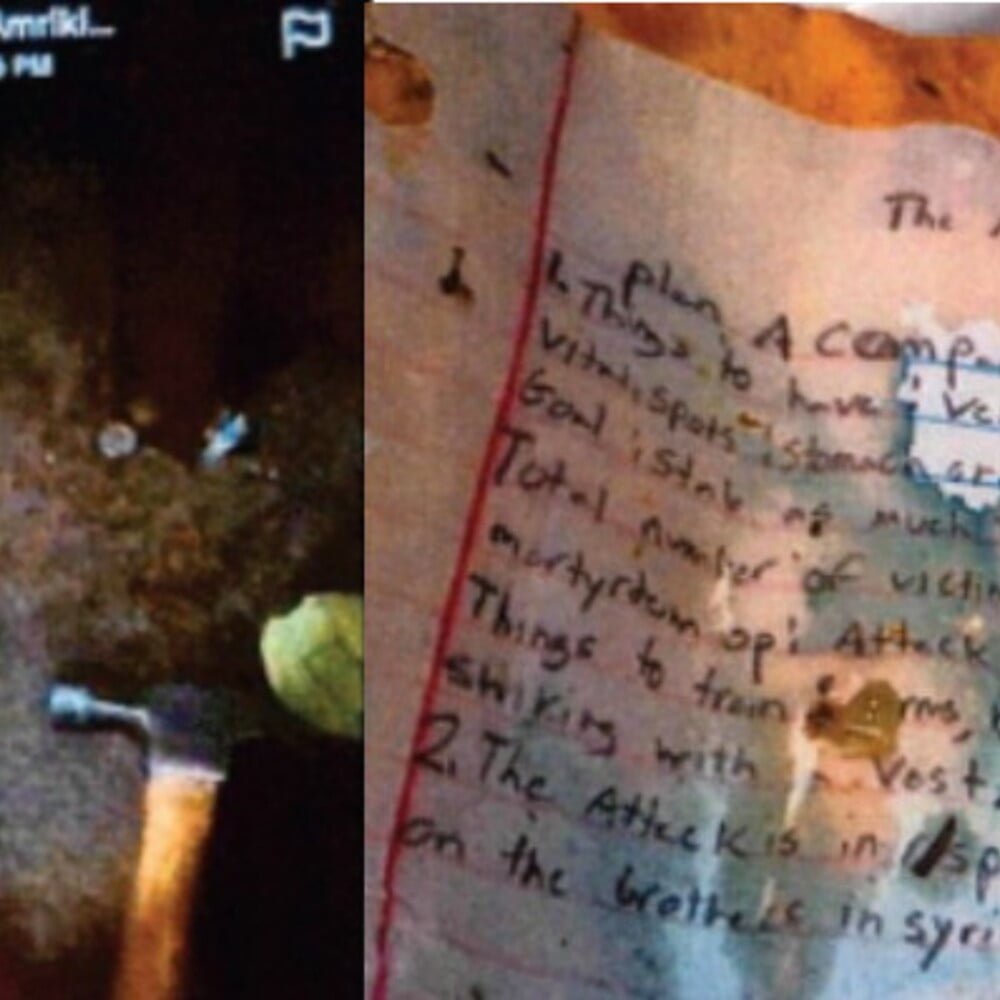 Amriki...
PM
The
Plan. A Comp
1. Things to have
Vital spots: stomach
Goal: Stab as much
Total number of
martyrdom op: Attack
Things to train
striking with
2. The Attack is in
on the brothers in